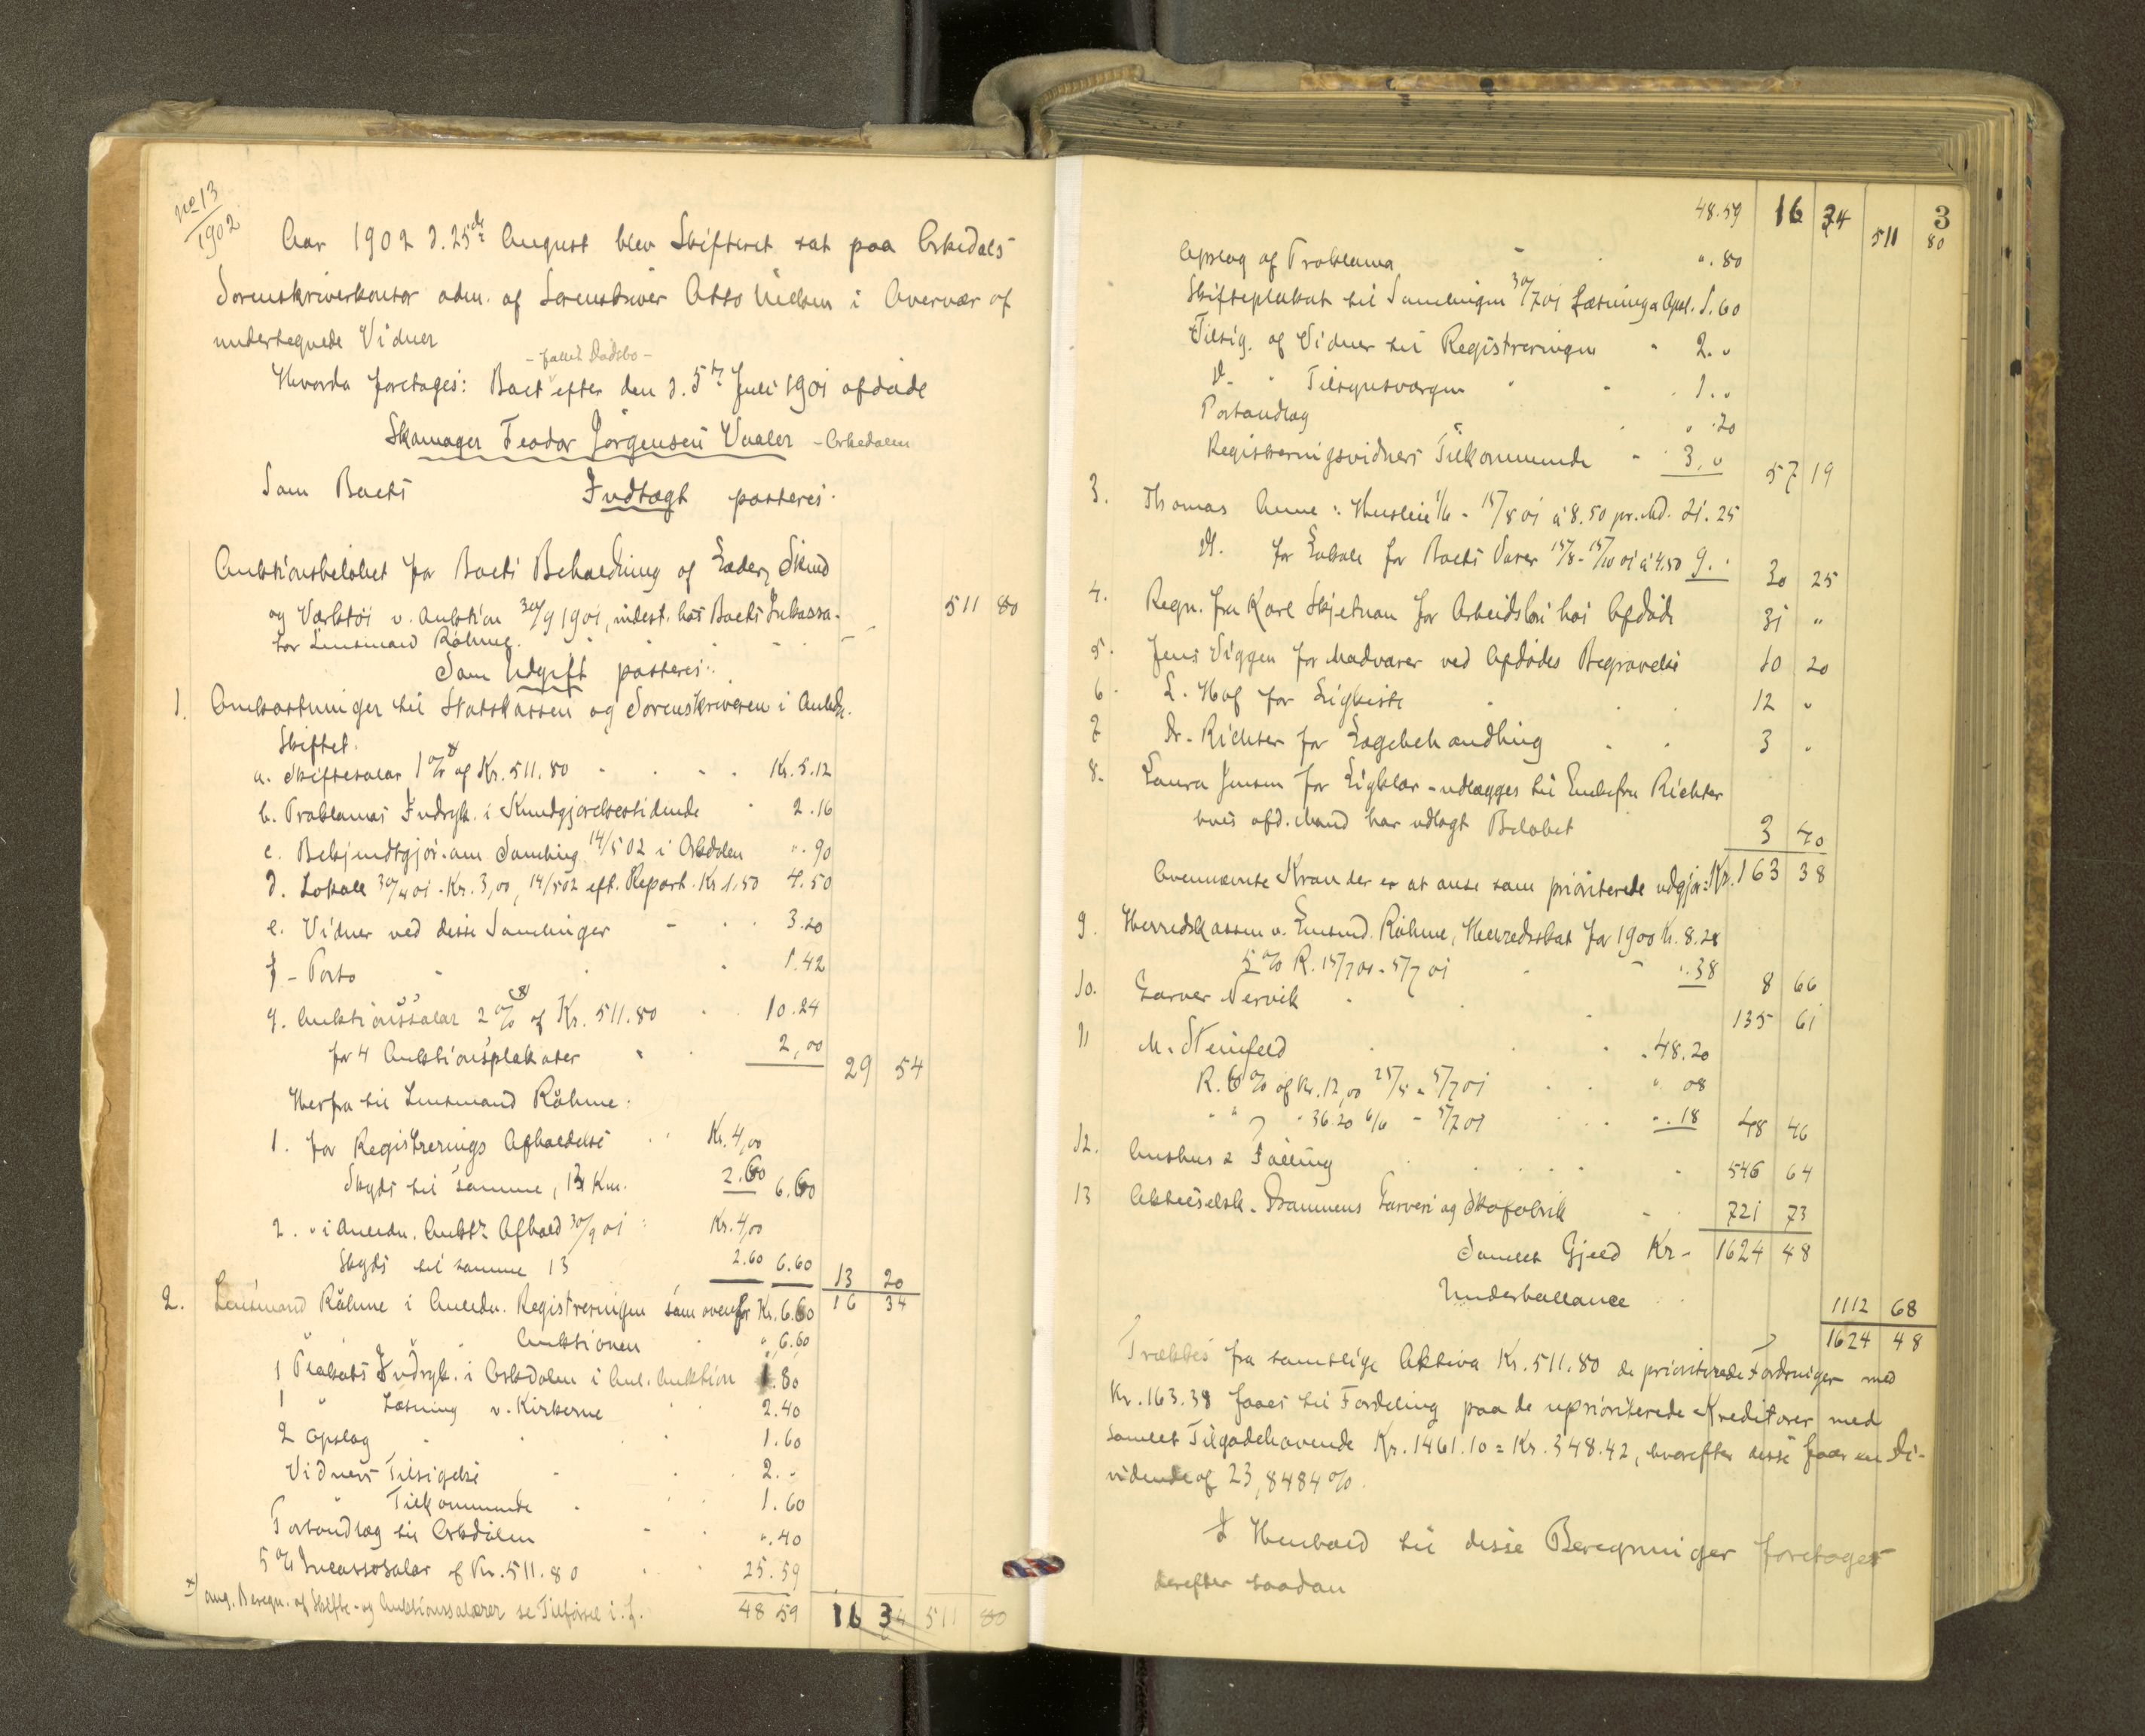 No 13
1902
Aar 1902 d. 25de August blev Skifteret sat paa Orkedals
Sorenskriverkontor adm. af Sorenskriver Otto Nielsen i Overvær af
undertegnede Vidner
- fallit Dødsbo -
Hvorda foretoges: Boet efter den d. 5te Juli 1901 afdøde
Skomager Teodor Jørgensen Vaaler - Orkedalen
Som Boets Indtægt posteres:
Auktionsbeløbet for Boets Beholdning af Læder, Skind
og Værktøi v. Auktion 30/9 1901, indest. hos Boets Inkassa- 511 80
tor Lensmand Råhme.
Som Udgift posteres:
1. Omkostninger til Statskassen og Sorenskriveren i Anledn.
Skiftet.
a. Skiftesalær 1 % af Kr. 511.80 Kr. 5.12
b. Proklamas Indryk. i Kundgjørelsestidende 2.16
c. Bekjendtgjør. om Samling 14/5 02 i Orkdølen ". 90
d. Lokale 30/4 01 - Kr. 3,00, 14/5 02 eft. Repart. Kr 1,50 4.50
e. Vidner ved disse Samlinger 3.20
f - Porto 1.42
g. Auktionssalær 2 % af Kr. 511.80 10.24
for 4 Auktionsplakater 2,00 29 54
Herfra til Lensmand Råhme.
1. for Registrerings Afholdelse Kr. 4,00
Skyds til samme, 13 Km. 2.60 6.60
2. " i Anledn. Aukt. Afhold 30/9 01 Kr. 4,00
Skyds til samme 13 2.60 6.60 13 20
2. Lensmand Råhme i Anledn. Registreringen som ovenfor Kr. 6.60 16 34
" " " Auktionen " 6.60
1 Plakats Indryk. i Orkdølen i Anl. Auktion 1.80
1 " Læsning v. Kirkerne 2.40
2 Opslag 1.60
Vidners Tilsigelse 2. -
Tilkommende 1.60
Portoudlæg til Orkdølen ". 40
5 % Incassosalær af Kr. 511.80 25.59
x) ang. Beregn. af Skifte- og Auktionssalærer se Tilførsel i. f. 48 59 16 34 511 80
3
48.59 16 34 511 80
Opslag af Proklama ". 80
Skifteplakat til Samlingen 30/7 01 Læsning & Opsl. 1.60
Tilsig. af Vidner til Registreringen " 2. "
D. " Tilsynsværgen 1. "
Portoudlæg " .20
Registreringsvidners Tilkommende 3, " 57 19
3. Thomas Aune: Husleie 1/6 - 15/8 01 à 8.50 pr. Md. 21.25
D. for Lokale for Boets Varer 15/8 - 15/10 01 à 4.50 9. " 30 25
4. Regn. fra Karl Skjetnan for Arbeidsløn hos Afdøde 31 "
5. Jens Viggen for Madvarer ved Afdødes Begravelse 10 20
6. L. Hof for Ligkiste 12 "
7 Dr. Richter for Lægebehandling 3 "
8. Laura Jensen for Ligklær - udlægges til Enkefru Richter
hvis afd. Mand har udlagt Beløbet 3 40
Ovennævnte Krav der er at anse som prioriterede udgjør: Kr. 163 38
9. Herredskassen v. Lensmd. Råhme, Herredsskat for 1900 Kr. 8.28
5 % R. 15/7 00 - 5/7 01 ". 38 8 66
10. Garver Nervik 135 61
11 M. Steinfeld 48.20
R. 6 % af Kr. 12,00 25/5 - 5/7 01 " 08
" " " 36.20 6/6 - 5/7 01 ". 18 48 46
12. Aushus & Fålling 546 64
13 Aktieselsk. Drammens Garveri og Skofabrik 721 73
Samlet Gjeld Kr - 1624 48
Underballance 1112 68
1624 48
Trækkes fra samtlige Aktiva Kr. 511.80 de prioriterede Fordringer med
Kr. 163.38 faaes til Fordeling paa de uprioriterede Kreditorer med
samlet Tilgodehavende Kr. 1461.10 = Kr. 348.42, hvorefter disse faar en Di-
vidende af 23,8484 %.
I Henhold til disse Beregninger foretoges
derefter saadan